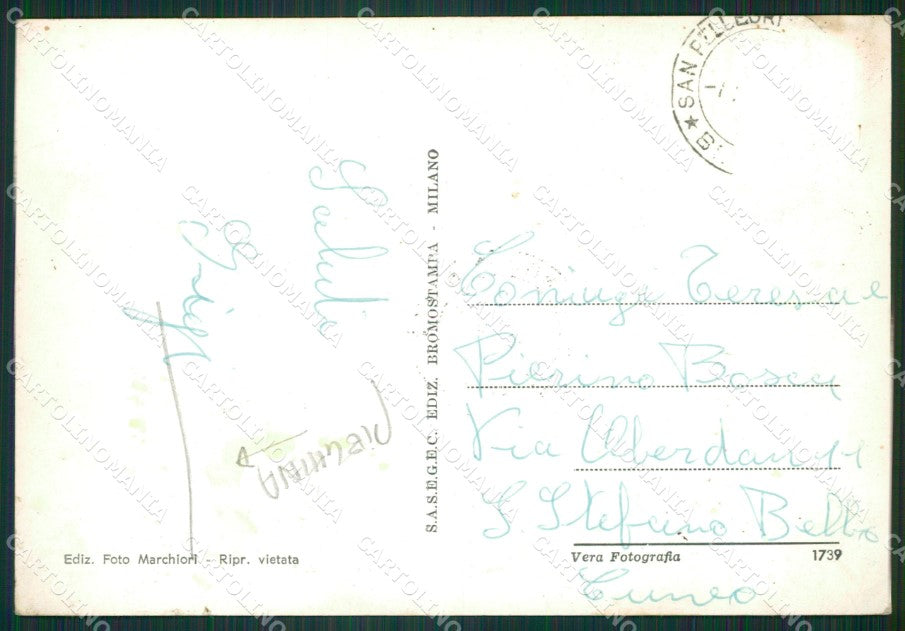 SAN PELLEGRI
Saluti
S.A.S.E.G.E.C. EDIZ. BROMOSTAMPA - MILANO
Coniugi Teresa e
Pierino
Via Oberdan
S. Stefano Belbo
Cuneo
PIEGHINA
Ediz. Foto Marchiori - Ripr. vietata
Vera Fotografia
1739
CARTOLINOMANIA